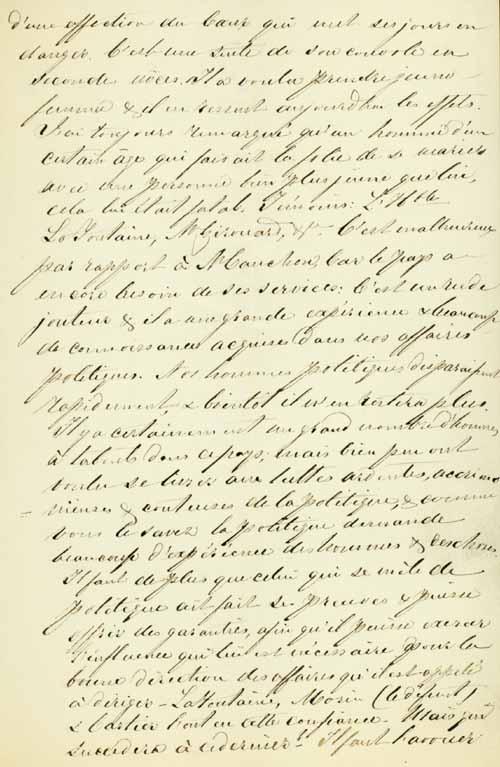 d'une affection du Cœur qui met ses jours en
danger. C'est une suite de son convole en
seconde nôces. Il a voulu prendre jeune
femme & il en ressent aujourd'hui les effets.
J'ai toujours remarqué qu'un homme d'un
certain âge qui faisait la folie de se marier
avec une personne bien plus jeune que lui,
cela lui était fatal. Témoins: L. H.
LaFontaine, Mr Girouard, &c. C'est malheureux
par rapport à Mr Cauchon, Car le pays a
encore besoin de ses services: C'est un rude
jouteur & il a une grande expérience & beaucoup
de connaissances acquises dans nos affaires
politiques. Nos hommes politiques disparaissent
rapidement, & bientôt il n'en restera plus.
Il y a certainement un grand nombre d'hommes
à talents dans ce pays, mais bien peu ont
voulu se livrer aux luttes ardentes, acrimo
= nieuses & couteuses de la politique, & comme
vous le savez la politique demande
beaucoup d'expérience des hommes & des choses.
Il faut de plus que celui qui se mêle de
politique ait fait ses preuves & puisse
offrir des garanties, afin qu'il puisse exercer
l'influence qui lui est nécessaire pour la
bonne direction des affaires qu'il est appelé
à diriger - LaFontaine, Morin (le défunt)
& Cartier ont eu cette confiance. Mais qui
succédera à ce dernier? Il faut l'avouer